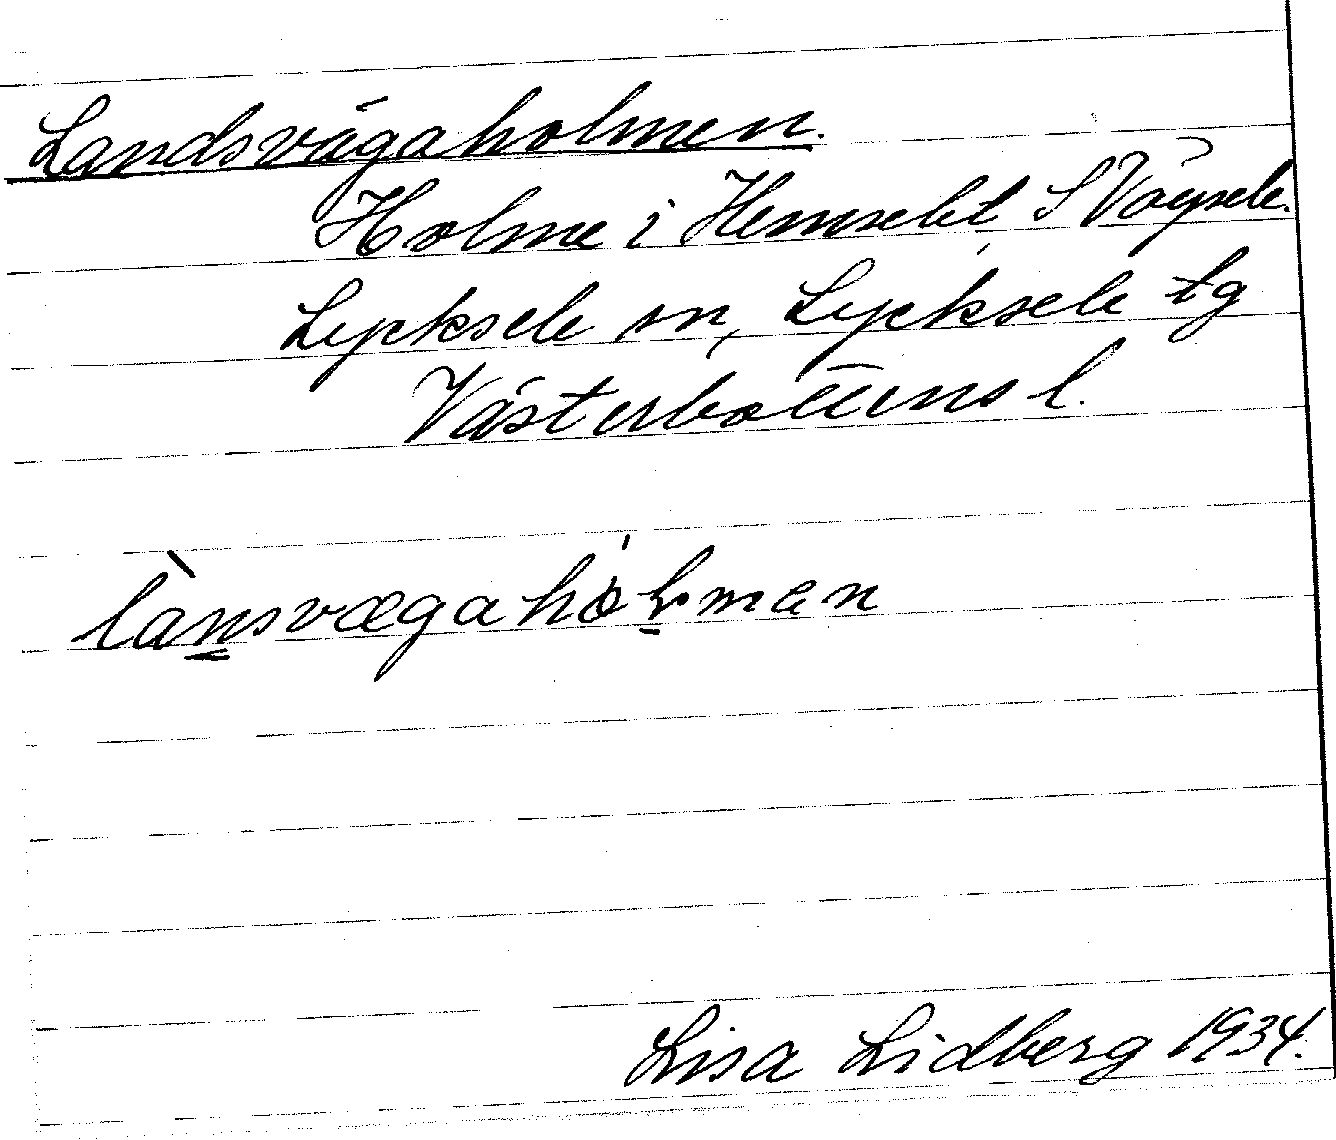 Landsvägaholmen.
Holme i Hemselet, S Vägsele.
Lycksele sn, Lycksele tg
Västerbottens l.
lànsvægahólman
Lisa Lidberg 1934.